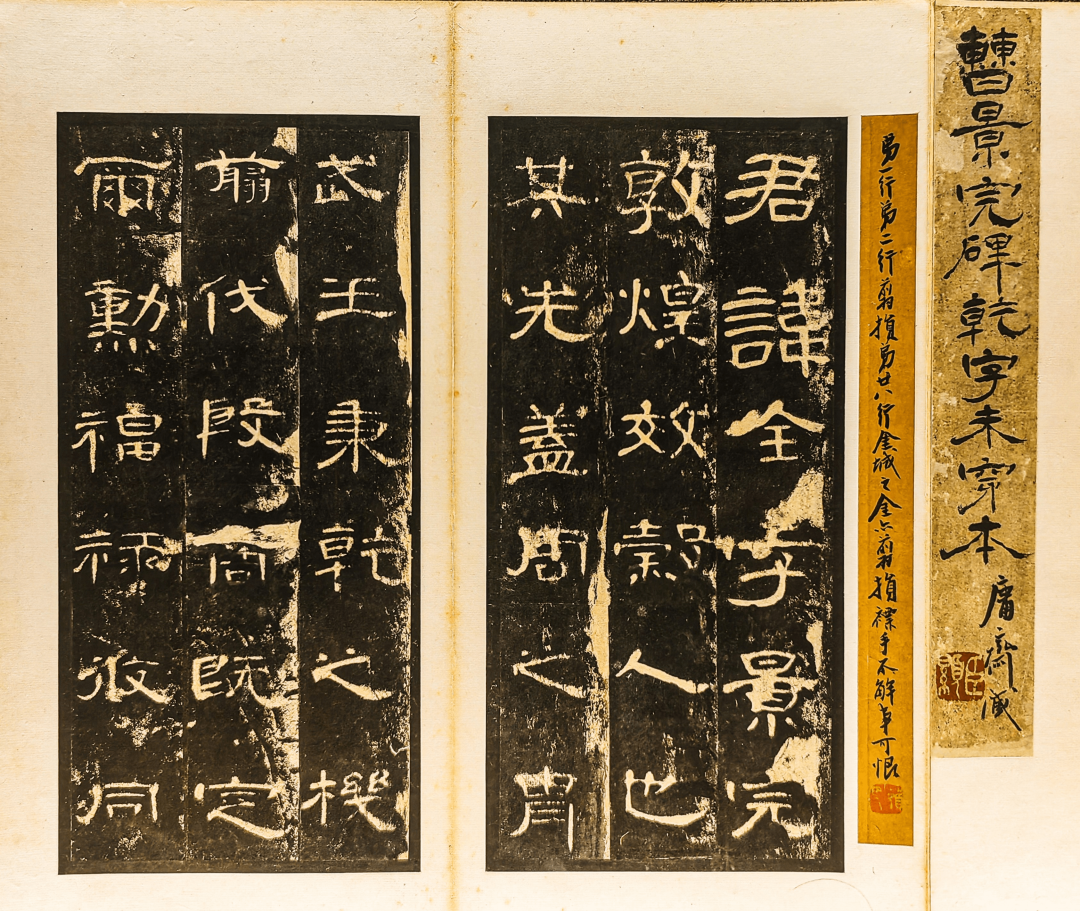 曹景完碑乾字未穿本
庸齋藏
弟一行弟二行翦損弟廿八行金城之金亦翦損褾手不解事可恨
君諱全字景完
敦煌效穀人也
其先蓋周之胄
武王秉乾之機
翦伐殷商既定
爾勳福祿攸同